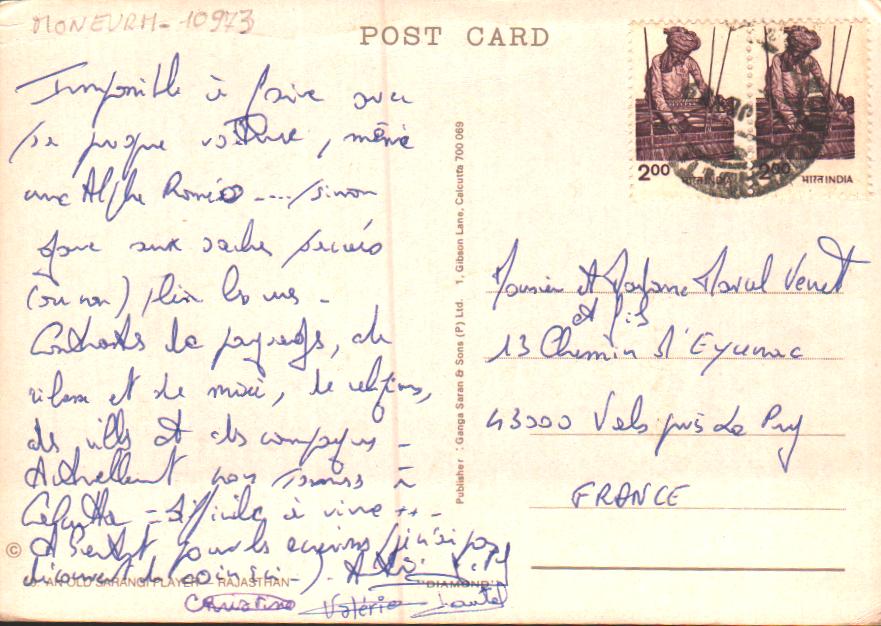 MONEVRM - 10973
POST CARD
Impossible à faire avec
sa propre voiture, même
une Alfa Roméo .... sinon
gare aux vaches sacrées
(ou non) plein les rues -
Contrastes de paysages, de
richesse et de misère, de religions,
des villes et des campagnes -
Actuellement nous sommes à
Calcutta - difficile à vivre ++ -
A bientôt pour les environs (
découvert de coins ici -).
Christine Valérie
AN OLD SARANGI PLAYER - RAJASTHAN
"DIAMOND"
©
Publisher : Ganga Saran & Sons (P) Ltd. 1, Gibson Lane, Calcutta 700 069
2.00 भारत INDIA
2.00 भारत INDIA
Monsieur et Madame Marcel Venet
et fils
13 Chemin d'Eycenac
43000 Vals près Le Puy
FRANCE